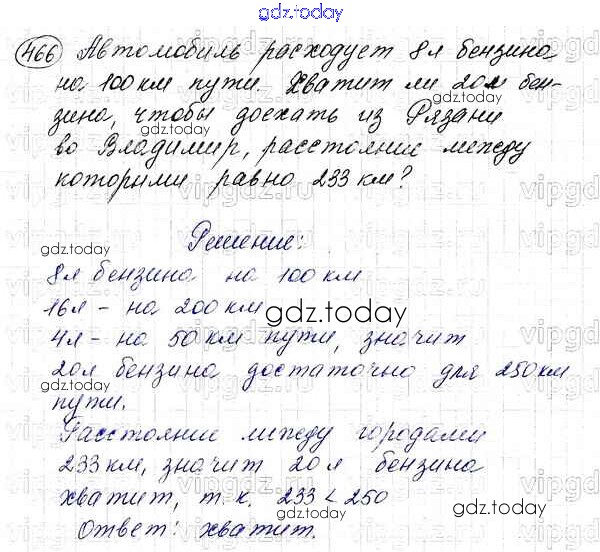 gdz.today
466 Автомобиль расходует 8л бензина
на 100 км пути. Хватит ли 20л бен-
зина, чтобы доехать из Рязани
во Владимир, расстояние между
которыми равно 233 км?
Решение:
8л бензина на 100 км
16л - на 200 км
4л - на 50 км пути, значит
20л бензина достаточно для 250 км
пути.
Расстояние между городами
233 км, значит 20л бензина
хватит, т.к. 233 < 250
Ответ: хватит.